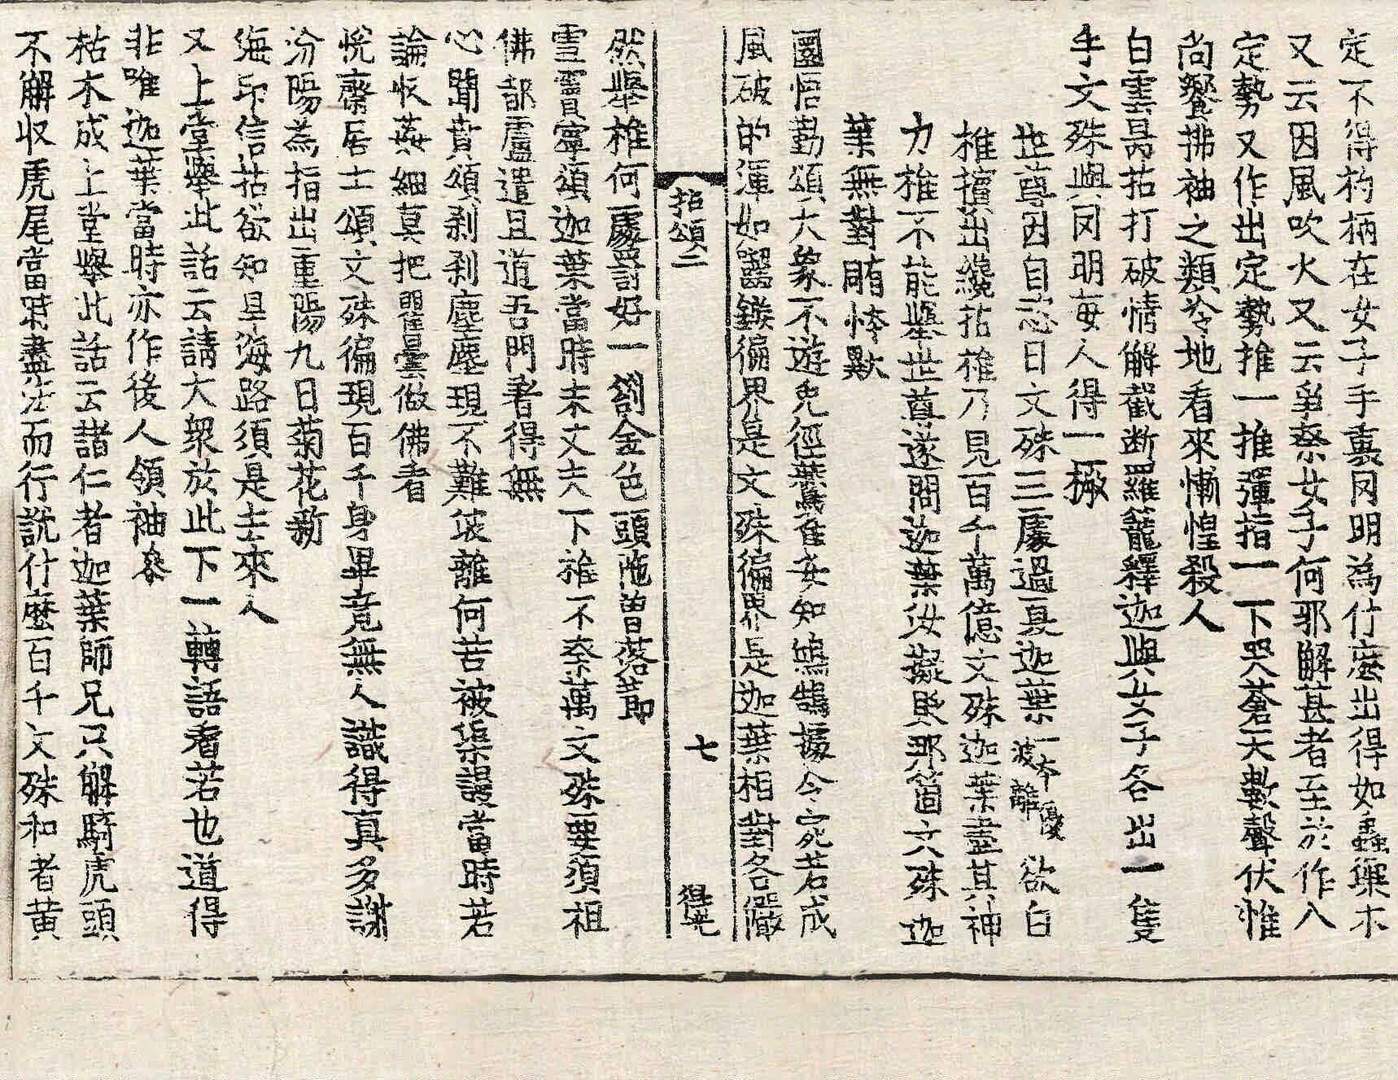 定不得杓柄在女子手裏罔明為什麽出得如蟲藥木
又云因風吹火又云爭柰女子何邪解甚者至於作入
定勢又作出定勢推一推彈指一下哭蒼天數聲伏惟
尚饗拂袖之類冷地看來慚惶殺人
白雲昺拈打破情解截断羅籠釋迦與女子各出一隻
手文殊與罔明每人得一橛
世尊因自恣日文殊三處過夏迦葉一本優波離欲白
椎擯出纔拈椎乃見百千萬億文殊迦葉盡其神
力椎不能舉世尊遂問迦葉汝擬擯那箇文殊迦
葉無對
圜悟勤頌大象不遊兔徑鷰雀安知鴻鵠據令宛若成
風破的渾如齧鏃徧界是文殊徧界是迦葉相對各儼
拈頌二
七
然舉椎何處罰好一劄金色頭陁曾落節
雪竇寧頌迦葉當時未丈夫下椎不柰萬文殊要須祖
佛都盧遣且道吾門著得無
心聞賁頌刹刹塵塵現不難彼離何苦被渠謾當時若
論收姦細莫把瞿曇做佛看
悅齋居士頌文殊徧現百千身畢竟無人識得真多謝
汾陽為指出重陽九日菊花新
海印信拈欲知且海路須是去來人
又上堂舉此話云請大衆於此下一轉語看若也道得
非唯迦葉當時亦作後人領袖參
枯木成上堂舉此話云諸仁者迦葉師兄只解騎虎頭
不解収虎尾當時盡法而行說什麽百千文殊和者黄